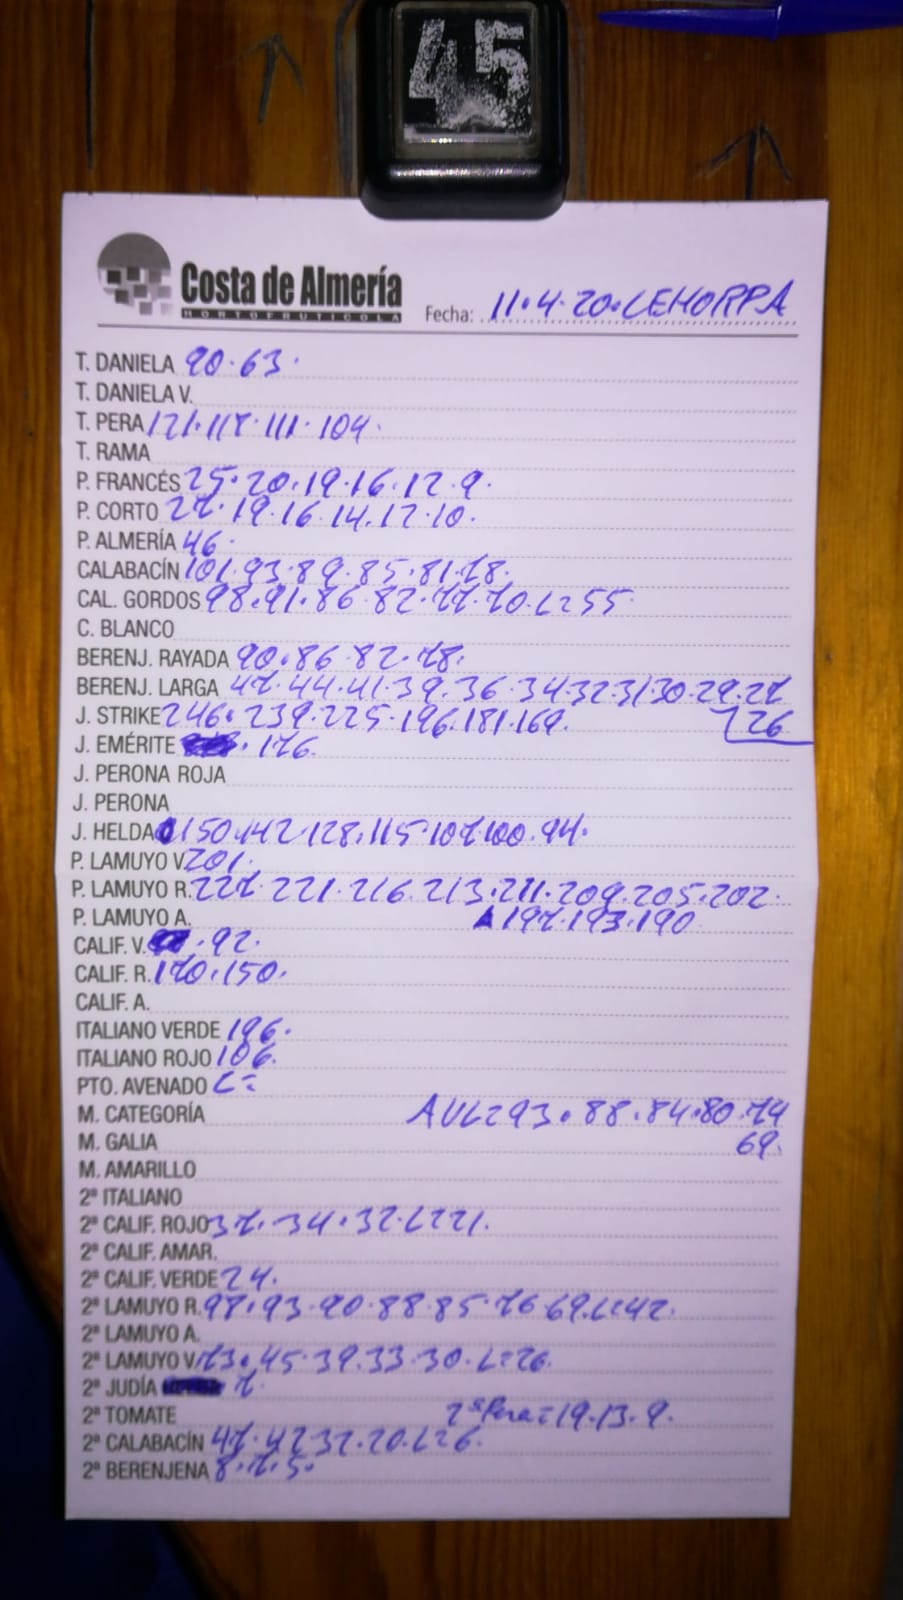 45
Costa de Almería
HORTOFRUTICOLA
Fecha: 11.4.20.LEHORPA
T. DANIELA 90.63.
T. DANIELA V.
T. PERA 121.118.111.104.
T. RAMA
P. FRANCÉS 25.20.19.16.12.9.
P. CORTO 27.19.16.14.12.10.
P. ALMERÍA 46.
CALABACÍN 101.93.89.85.81.78.
CAL. GORDOS 98.91.86.82.77.70.L=55
C. BLANCO
BERENJ. RAYADA 90.86.82.78.
BERENJ. LARGA 47.44.41.39.36.34.32.31.30.29.27
J. STRIKE 246.239.225.196.181.169. 26
J. EMÉRITE .176.
J. PERONA ROJA
J. PERONA
J. HELDA 150.142.128.115.107.100.94.
P. LAMUYO V. 201.
P. LAMUYO R. 227.221.216.213.211.209.205.202.
P. LAMUYO A. 197.193.190
CALIF. V. .92.
CALIF. R. 170.150.
CALIF. A.
ITALIANO VERDE 196.
ITALIANO ROJO 106.
PTO. AVENADO L=
M. CATEGORÍA AVL=93.88.84.80.74
M. GALIA 69.
M. AMARILLO
2ª ITALIANO
2ª CALIF. ROJO 37.34.32.L=21.
2ª CALIF. AMAR.
2ª CALIF. VERDE 24.
2ª LAMUYO R. 98.93.90.88.85.76.69.L=42.
2ª LAMUYO A.
2ª LAMUYO V. 73.45.39.33.30.L=26.
2ª JUDÍA 7.
2ª TOMATE 2ª Pera=19.13.9.
2ª CALABACÍN 47.42.32.20.L=6.
2ª BERENJENA 8.7.5.